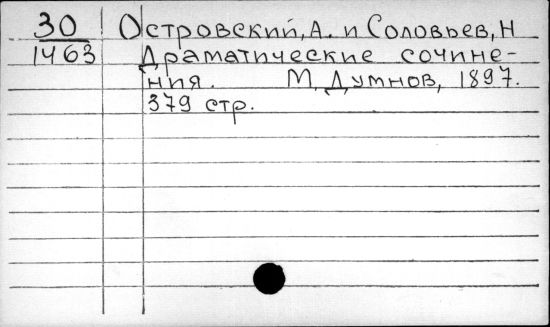 30 Островский, А. и Соловьев, Н
1463 Драматические сочине-
ния. М, Думнов, 1897.
379 стр.